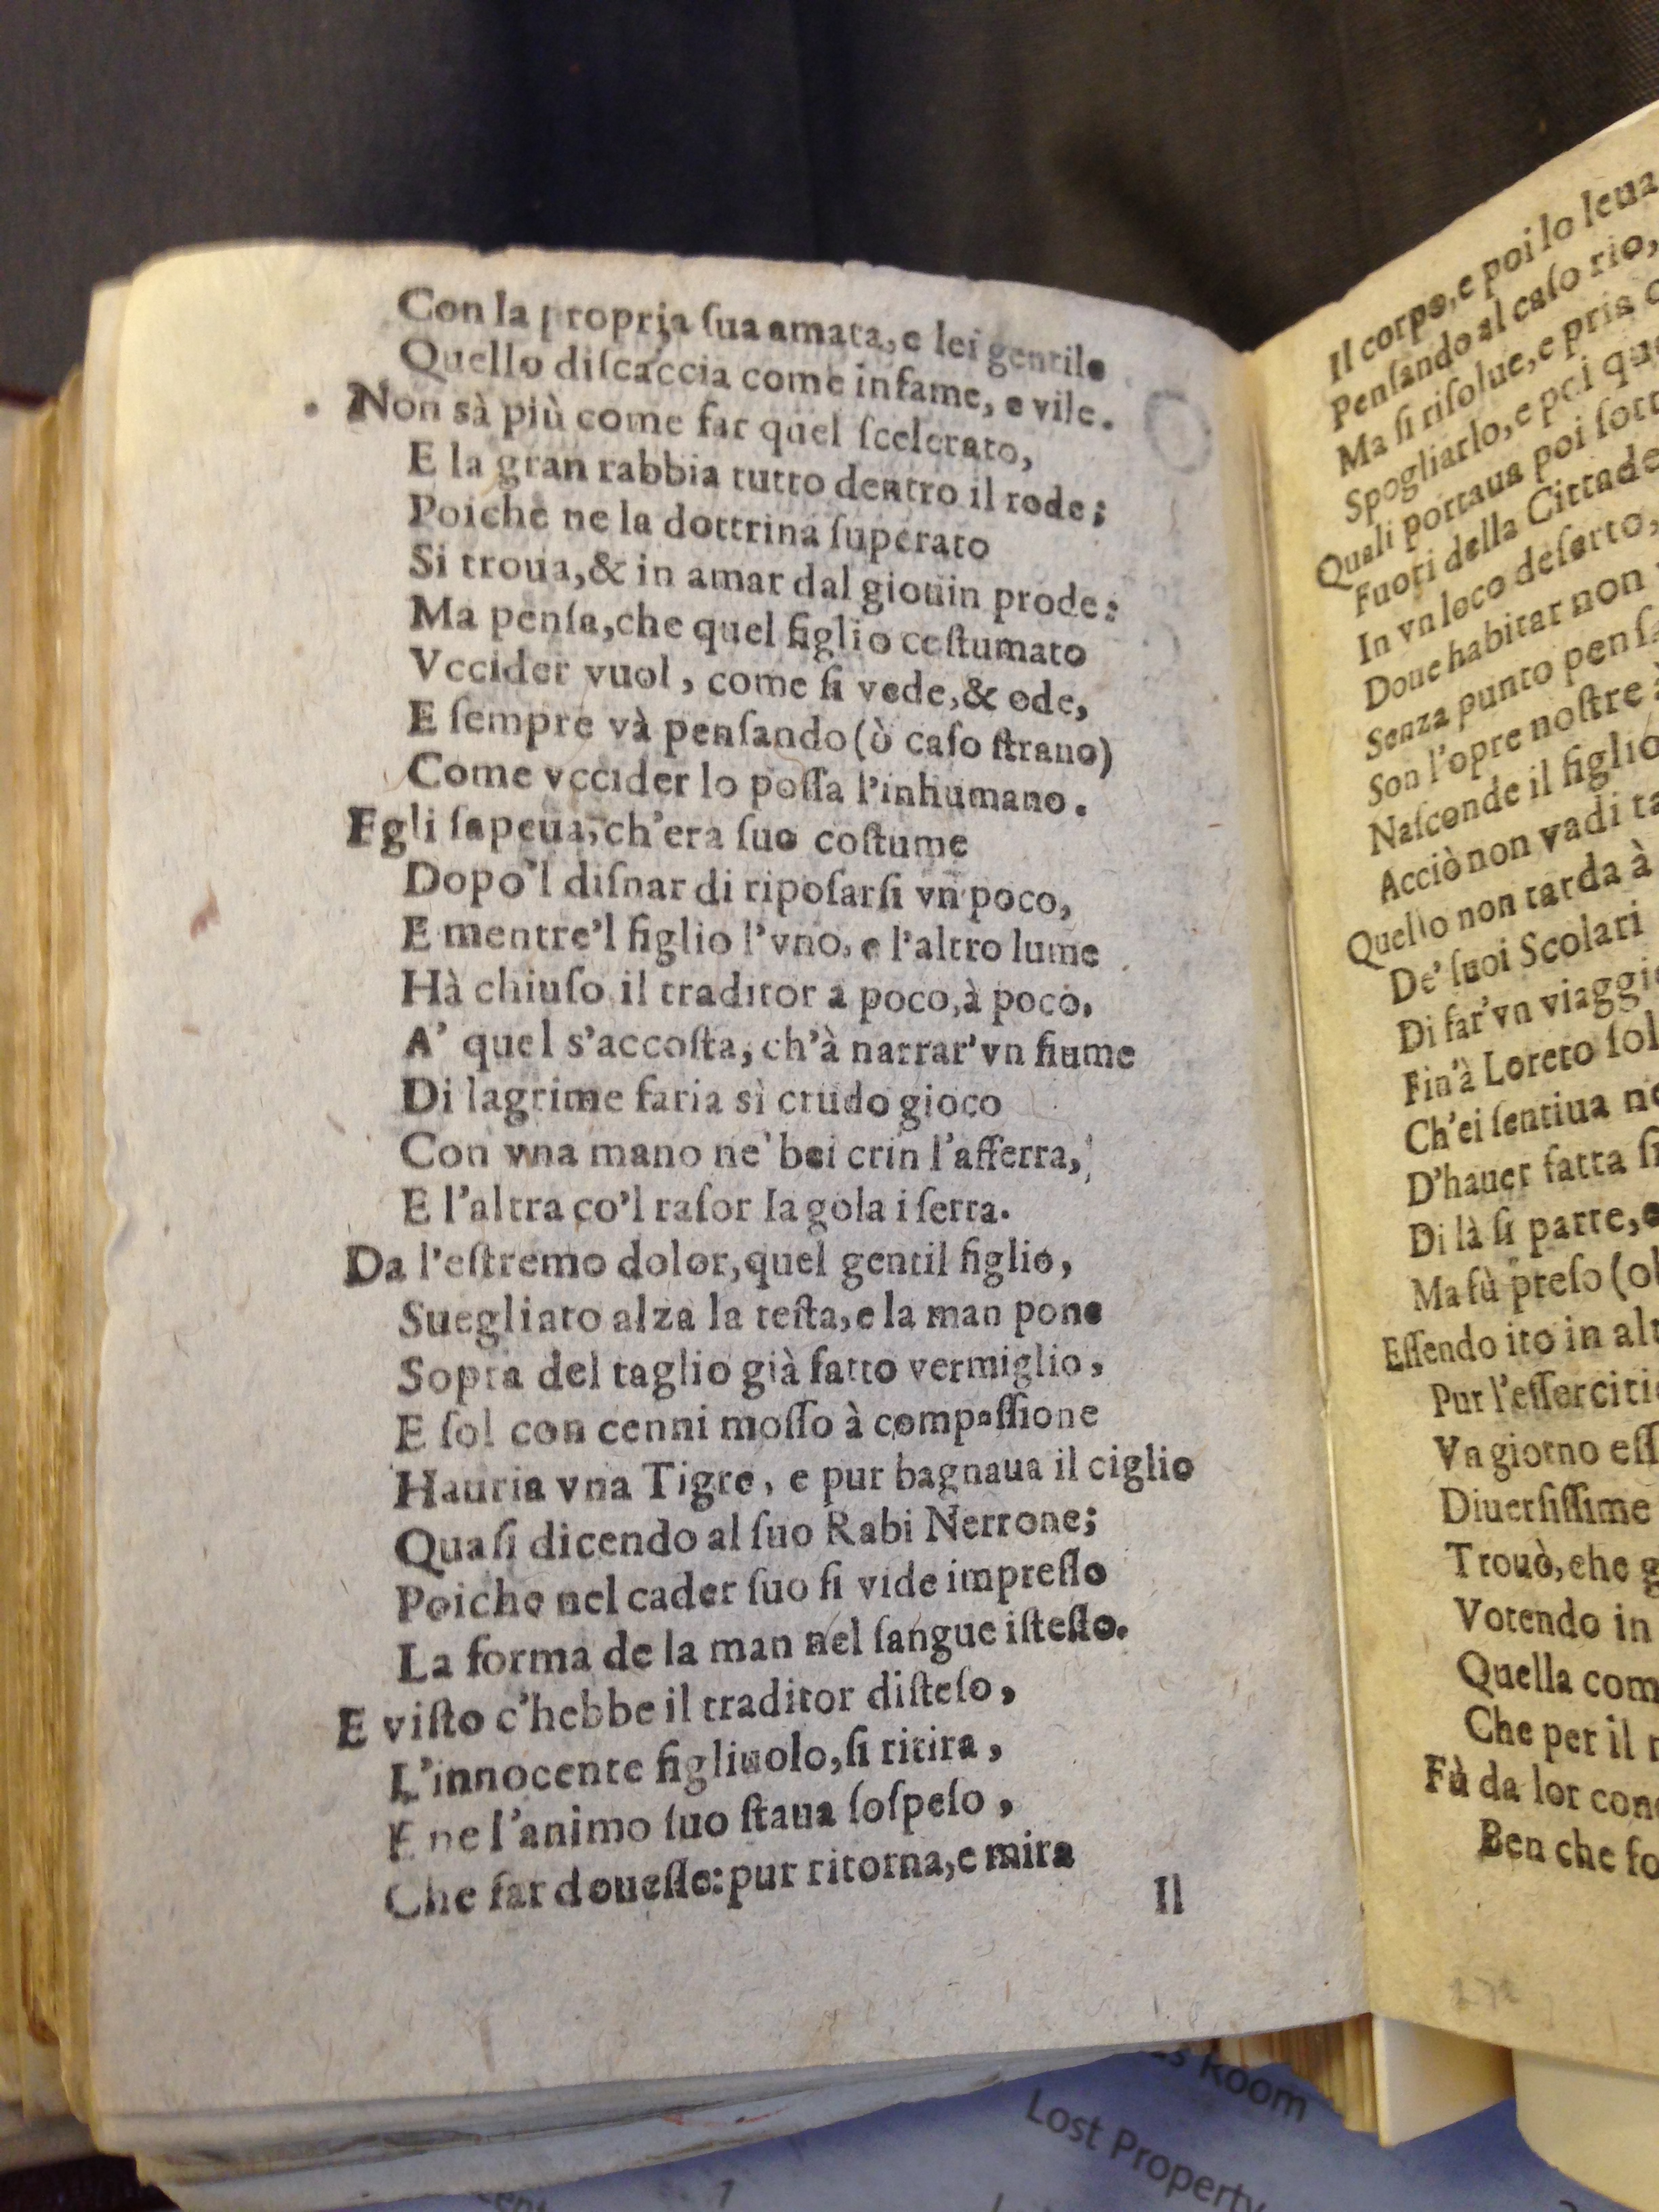 Con la propria ſua amata, e lei gentile
Quello diſcaccia come infame, e vile.
Non sà più come far quel ſcelerato,
E la gran rabbia tutto dentro il rode;
Poiche ne la dottrina ſuperato
Si troua,& in amar dal giouin prode:
Ma penſa,che quel figlio coſtumato
Vccider vuol, come ſi vede,& ode,
E ſempre và penſando (ò caſo ſtrano)
Come vccider lo poſſa l'inhumano.
Egli ſapeua, ch'era ſuo coſtume
Dopo'l diſnar di ripoſarſi vn poco,
E mentre'l figlio l'vno, e l'altro lume
Hà chiuſo il traditor a poco,à poco,
A' quel s'accoſta, ch'à narrar'vn fiume
Di lagrime faria sì crudo gioco
Con vna mano ne' bei crin l'afferra,
E l'altra co'l raſor la gola i ſerra.
Da l'eſtremo dolor,quel gentil figlio,
Suegliato alza la teſta,e la man pone
Sopra del taglio già fatto vermiglio,
E ſol con cenni moſſo à compaſſione
Hauria vna Tigre, e pur bagnaua il ciglio
Quaſi dicendo al ſuo Rabi Nerrone;
Poiche nel cader ſuo ſi vide impreſſo
La forma de la man nel ſangue iſteſſo.
E viſto c'hebbe il traditor diſteſo,
L'innocente figliuolo,ſi ritira,
E ne l'animo ſuo ſtaua ſoſpeſo,
Che far doueſſe: pur ritorna,e mira
Il
Il corpo, e poi lo leua
Penſando al caſo rio,
Ma ſi riſolue, e pria
Spogliarlo, e poi
Quali portaua poi
Fuori della Cittade
In vn loco deſerto,
Doue habitar non
Senza punto
Son l'opre noſtre
Naſconde il figlio
Acciò non vadi
Quello non tarda à
De' ſuoi Scolari
Di far'vn
Fin'à Loreto
Ch'ei ſentiua
D'hauer fatta
Di là ſi parte,
Ma fù preſo
Eſſendo ito in
Pur
Vn giorno
Diuerſiſſime
Trouò, che
Votendo in
Quella
Che per il
Fù da lor
Ben che
272
Room
Lost Property
1